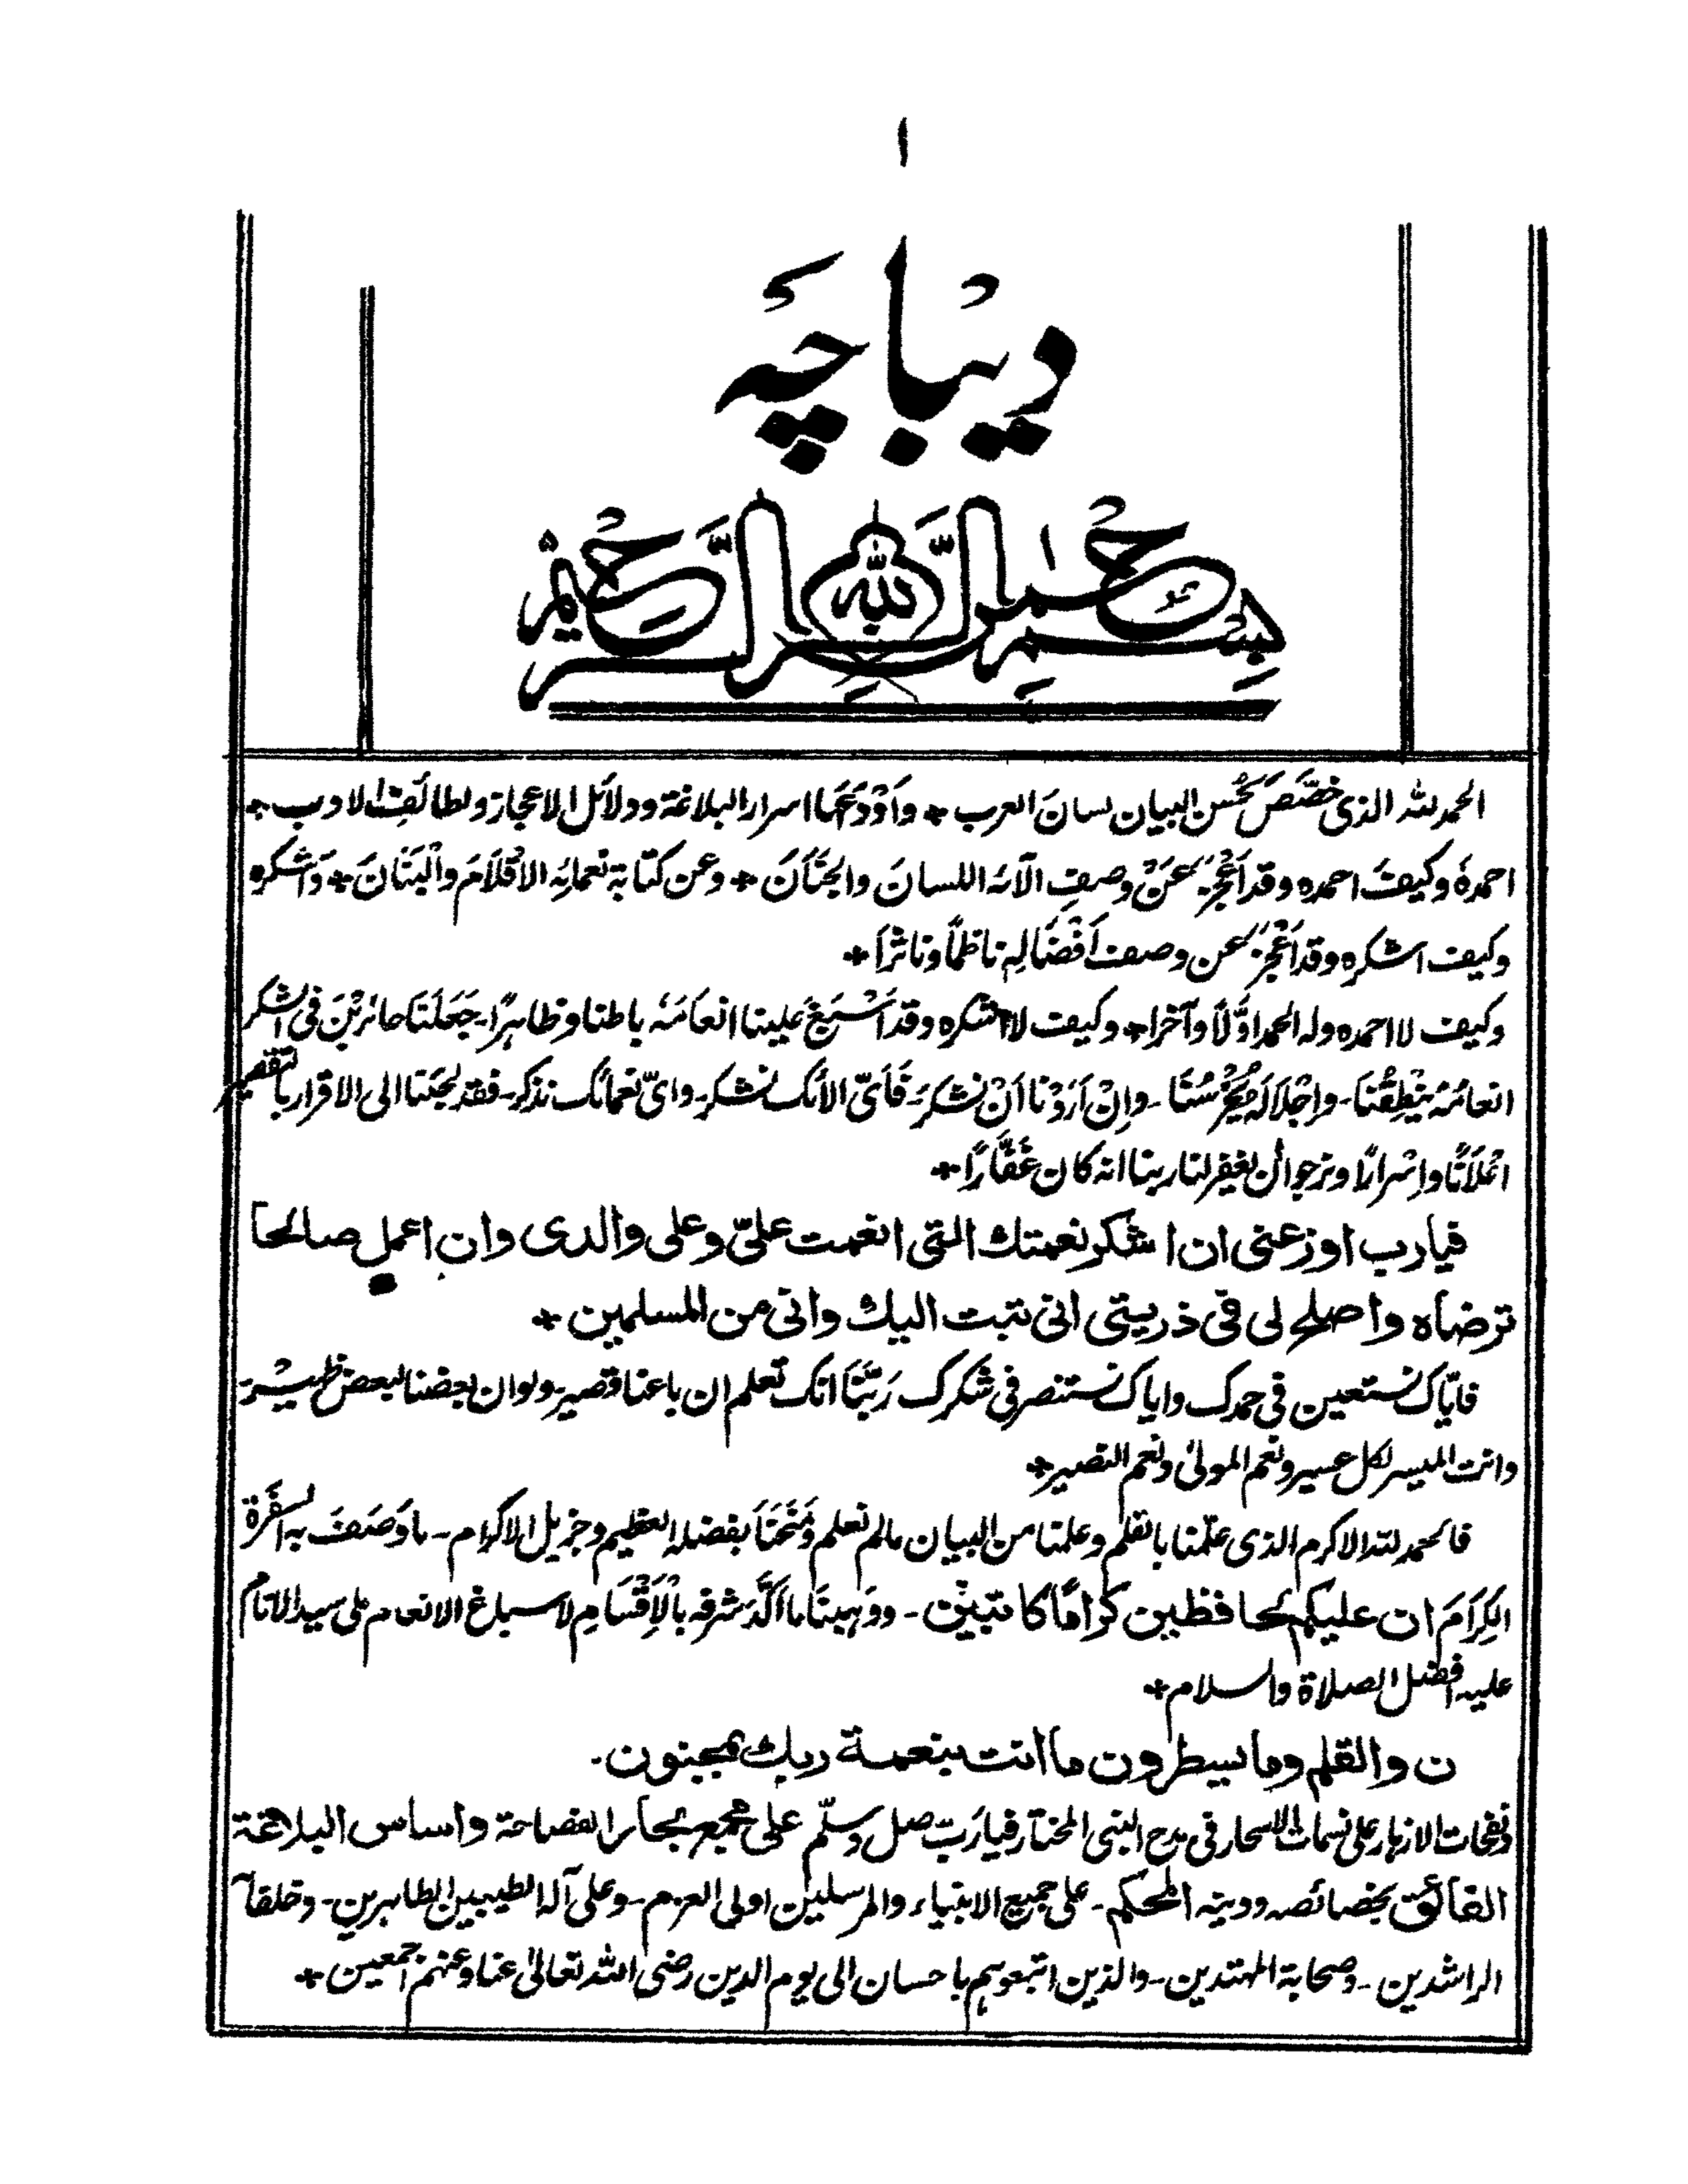 ١
دیباچہٴ
بسم الله الرحمن الرحيم
الحمد لله الذی خصّصَ بحُسن البیان لسانَ العرب + واَوْدَعَها اسرار البلاغة ودلائل الاعجاز ولطائفِ الادب +
احمدهٗ وکیفَ احمده وقد اَعْجَزَ عَنْ وصفِ الآئہ اللسانَ والجَنَانَ + وعن کتابة نعمائِه الاقْلَامَ والْبَنَانَ + وَاَشکره
وکیف اشکره وقد اَعْجَزَ عن وصف اَفْضَالِہ ناظمًا وناثرًا +
وکیف لا احمده وله الحمد اوَّلًا وآخرا + وکیف لا اشکره وقد اَسْبَغَ علینا انعامَہٗ باطنا وظاہرًا۔ جَعَلَنَا حائرِیْنَ فی الشکر
انعامُہٗ یُنْطِقُنَا۔ واِجْلَالَہٗ یُخْرِسُنَا۔ وإنْ اَرَدْنَا اَنْ نَشکرَ۔ فَاَیّ الآئک نشکر۔ وایّ نعمائک نذکر۔ فقد لجئنا الی الاقرار بالتقصیر
اعْلَانًا واِسْرارًا ونرجو ان یغفر لنا ربنا انہ کان غَفَّارًا +
فیارب اوزعنی ان اشکر نعمتك التی انعمت علیّ وعلی والدی وان اعمل صالحا
ترضاه واصلح لی فی ذریتی انی تبت الیك وانی من المسلمین +
فایّاک نستعین فی حمدک وایاک نستنصر فی شکرک رَبَّنَا انک تعلم ان باعنا قصیر۔ ولو ان بعضنا لبعض ظہیْرٌ۔
وانت المیسر لکل عسیر ونعم المولیٰ ونعم النصیر +
فالحمد لله الاکرم الذی علّمنا بالقلم وعلمنا من البیان مالم نعلم وَمَنَحَنَا بفضلہ العظیم وجزیل الاکرام۔ ما وَصَفَ بہ السفَرَة
الکِرَامَ ان علیکم لحافظین کرامًا کاتبین۔ ووہبنا ما اکَّدَ شرفہ بالْاِقْسَامِ لاسباغ الانعام علی سید الانام
علیہ افضل الصلاة والسلام +
ن والقلم وما یسطرون ما انت بنعمة ربك بمجنون۔
ونفحات الازہار علی نسمات الاسحار فی مدح النبی المختار فیارَبّ صل وسلّم علی مجمع بحار الفصاحة واساس البلاغة
الفائق بخصائصہ ودینہ المحکم۔ علی جمیع الانبیاء والمرسلین اولی العزم۔ وعلی آلہ الطیبین الطاہرین۔ وخلفآء
الراشدین۔ وصحابة المهتدین۔ والذین اتبعوہم باحسان الی یوم الدین رضی الله تعالیٰ عنا وعنہم اجمعین +